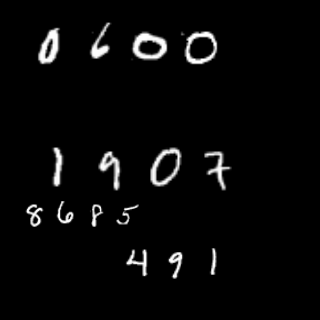 0600
1907
8685
491